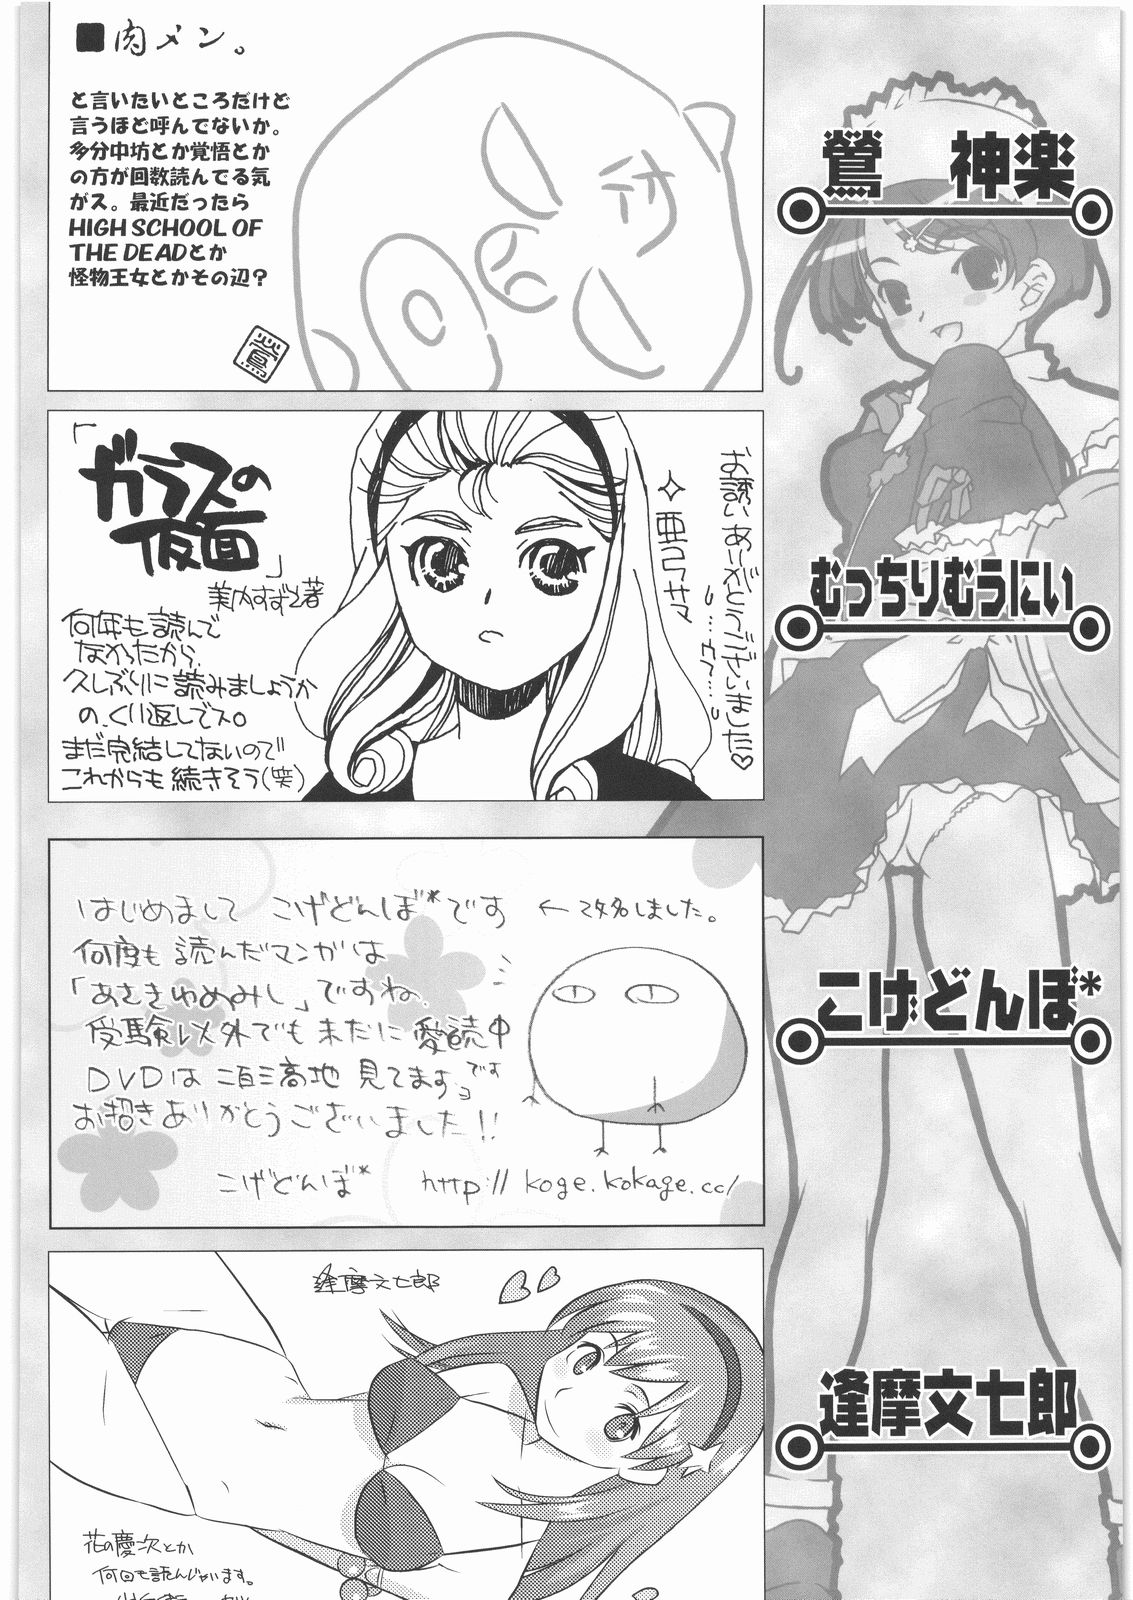 ■肉メン。
と言いたいところだけど
言うほど呼んでないか。
多分中坊とか覚悟とか
の方が回数読んでる気
がス。最近だったら
HIGH SCHOOL OF
THE DEADとか
怪物王女とかその辺？
鶯
鶯　神楽
「ガラスの
仮面」
美内すずえ著
何年も読んで
なかったから、
久しぶりに読みましょうか
の、くり返しでス。
まだ完結してないので
これからも続きそう(笑)
お誘いありがとうございました♡
亜弓サマ
むっちりむうにい
はじめまして　こげどんぼ*です　←改名しました。
何度も読んだマンガは
「あさきゆめみし」ですね、
受験以外でも未だに愛読中
DVDは二百三高地 見てます。です
お招きありがとうございました!!
こげどんぼ*　http://koge.kokage.cc/
こげどんぼ*
逢摩文七郎
逢摩文七郎
花の慶次とか
何回も読んじゃいます。